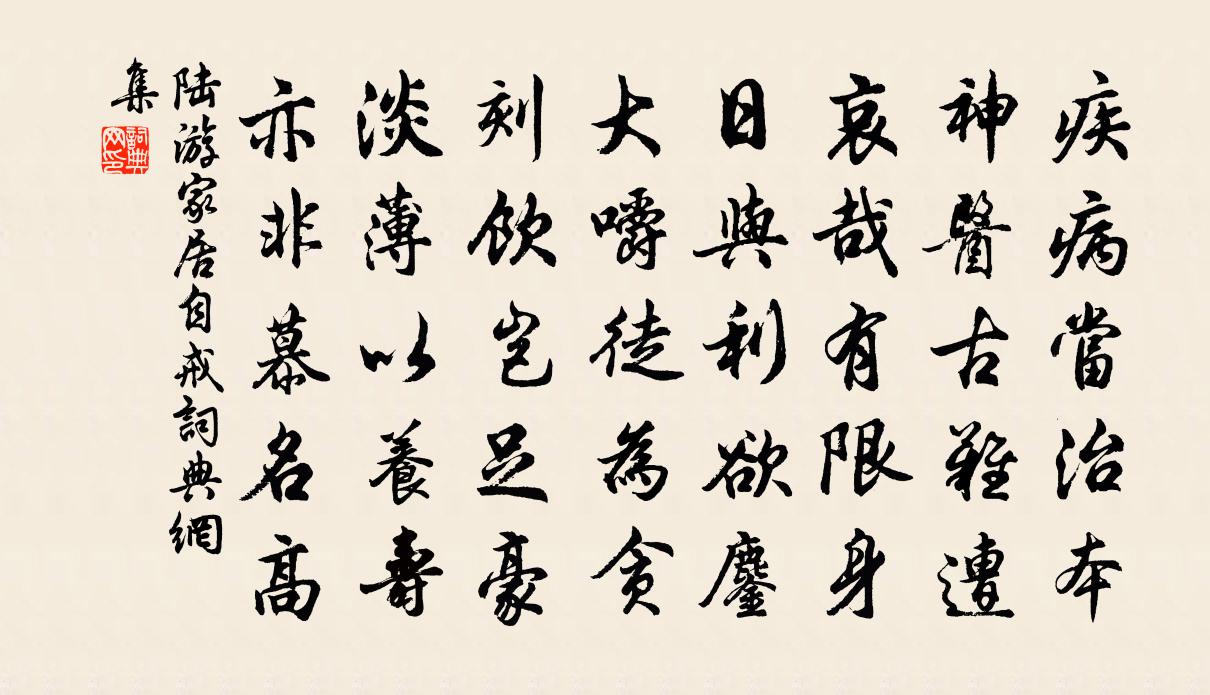 疾病當治本
神醫古難遭
哀哉有限身
日與利欲鏖
大嚼徒為貪
刻飲豈足豪
淡薄以養壽
亦非慕名高
陸游家居自戒詞典網
集
詞典
网印